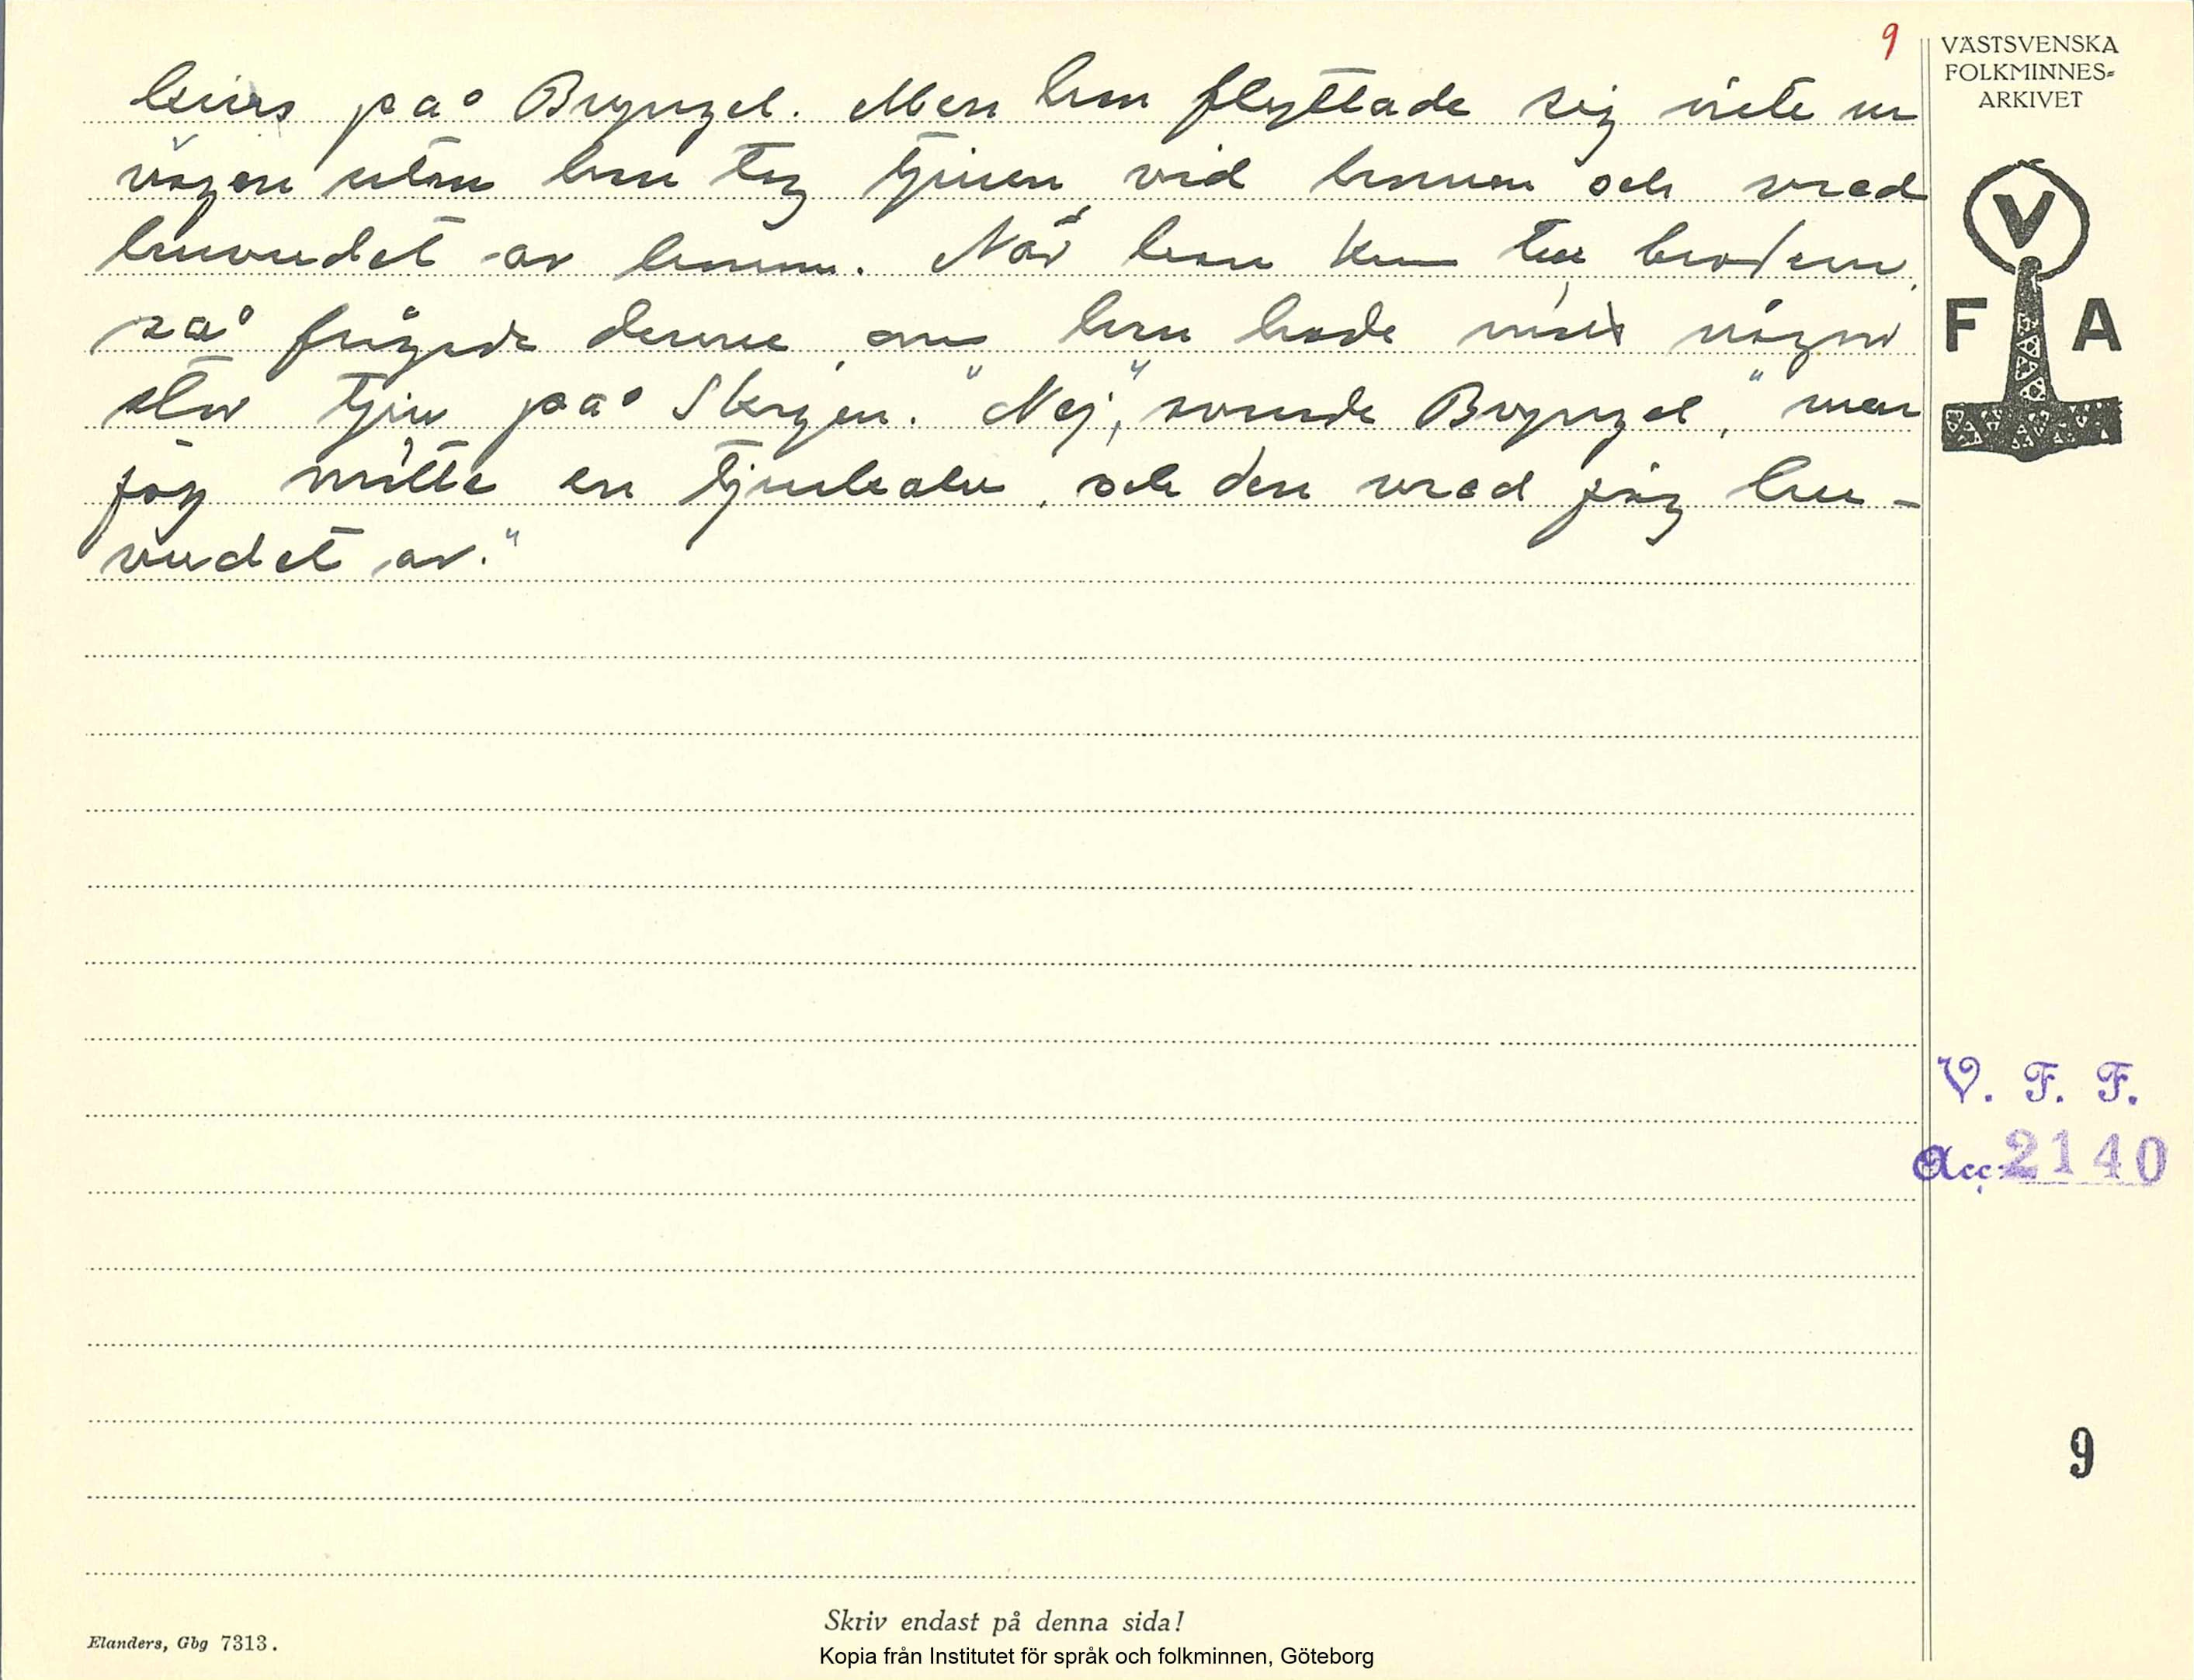 9
VÄSTSVENSKA
FOLKMINNES-
ARKIVET
på Bryngel. Men han flyttade sig inte ur
vägen utan han tog tjuren vid hornen och vred
huvudet av honom. När han kom till brodern,
så frågade denne, om han hade mött någon
stor tjur på Skogen. "Nej", svarade Bryngel, "men
jag mötte en tjurkalv, och den vred jag hu-
vudet av."
V
F A
V. F. F.
Acc. 2140
9
Skriv endast på denna sida!
Elanders, Gbg 7313.
Kopia från Institutet för språk och folkminnen, Göteborg